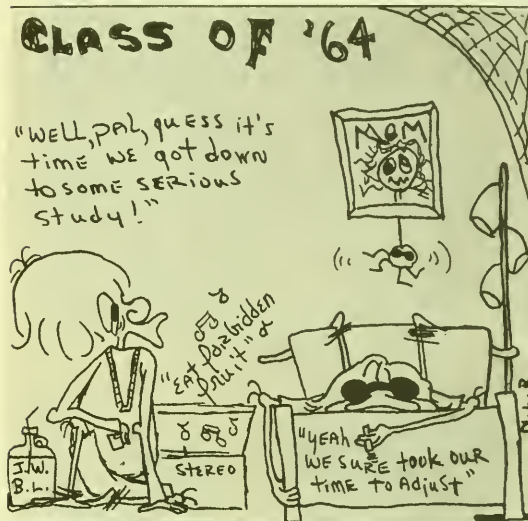 CLASS OF '64
"WELL, PAL, quESS it's
time WE got down
to some SERIOUS
Study!"
MOM
"EAT forbidden
fruit"
J.W.
B.L.
STEREO
"yEAH
WE SURE took OUR
time to Adjust"